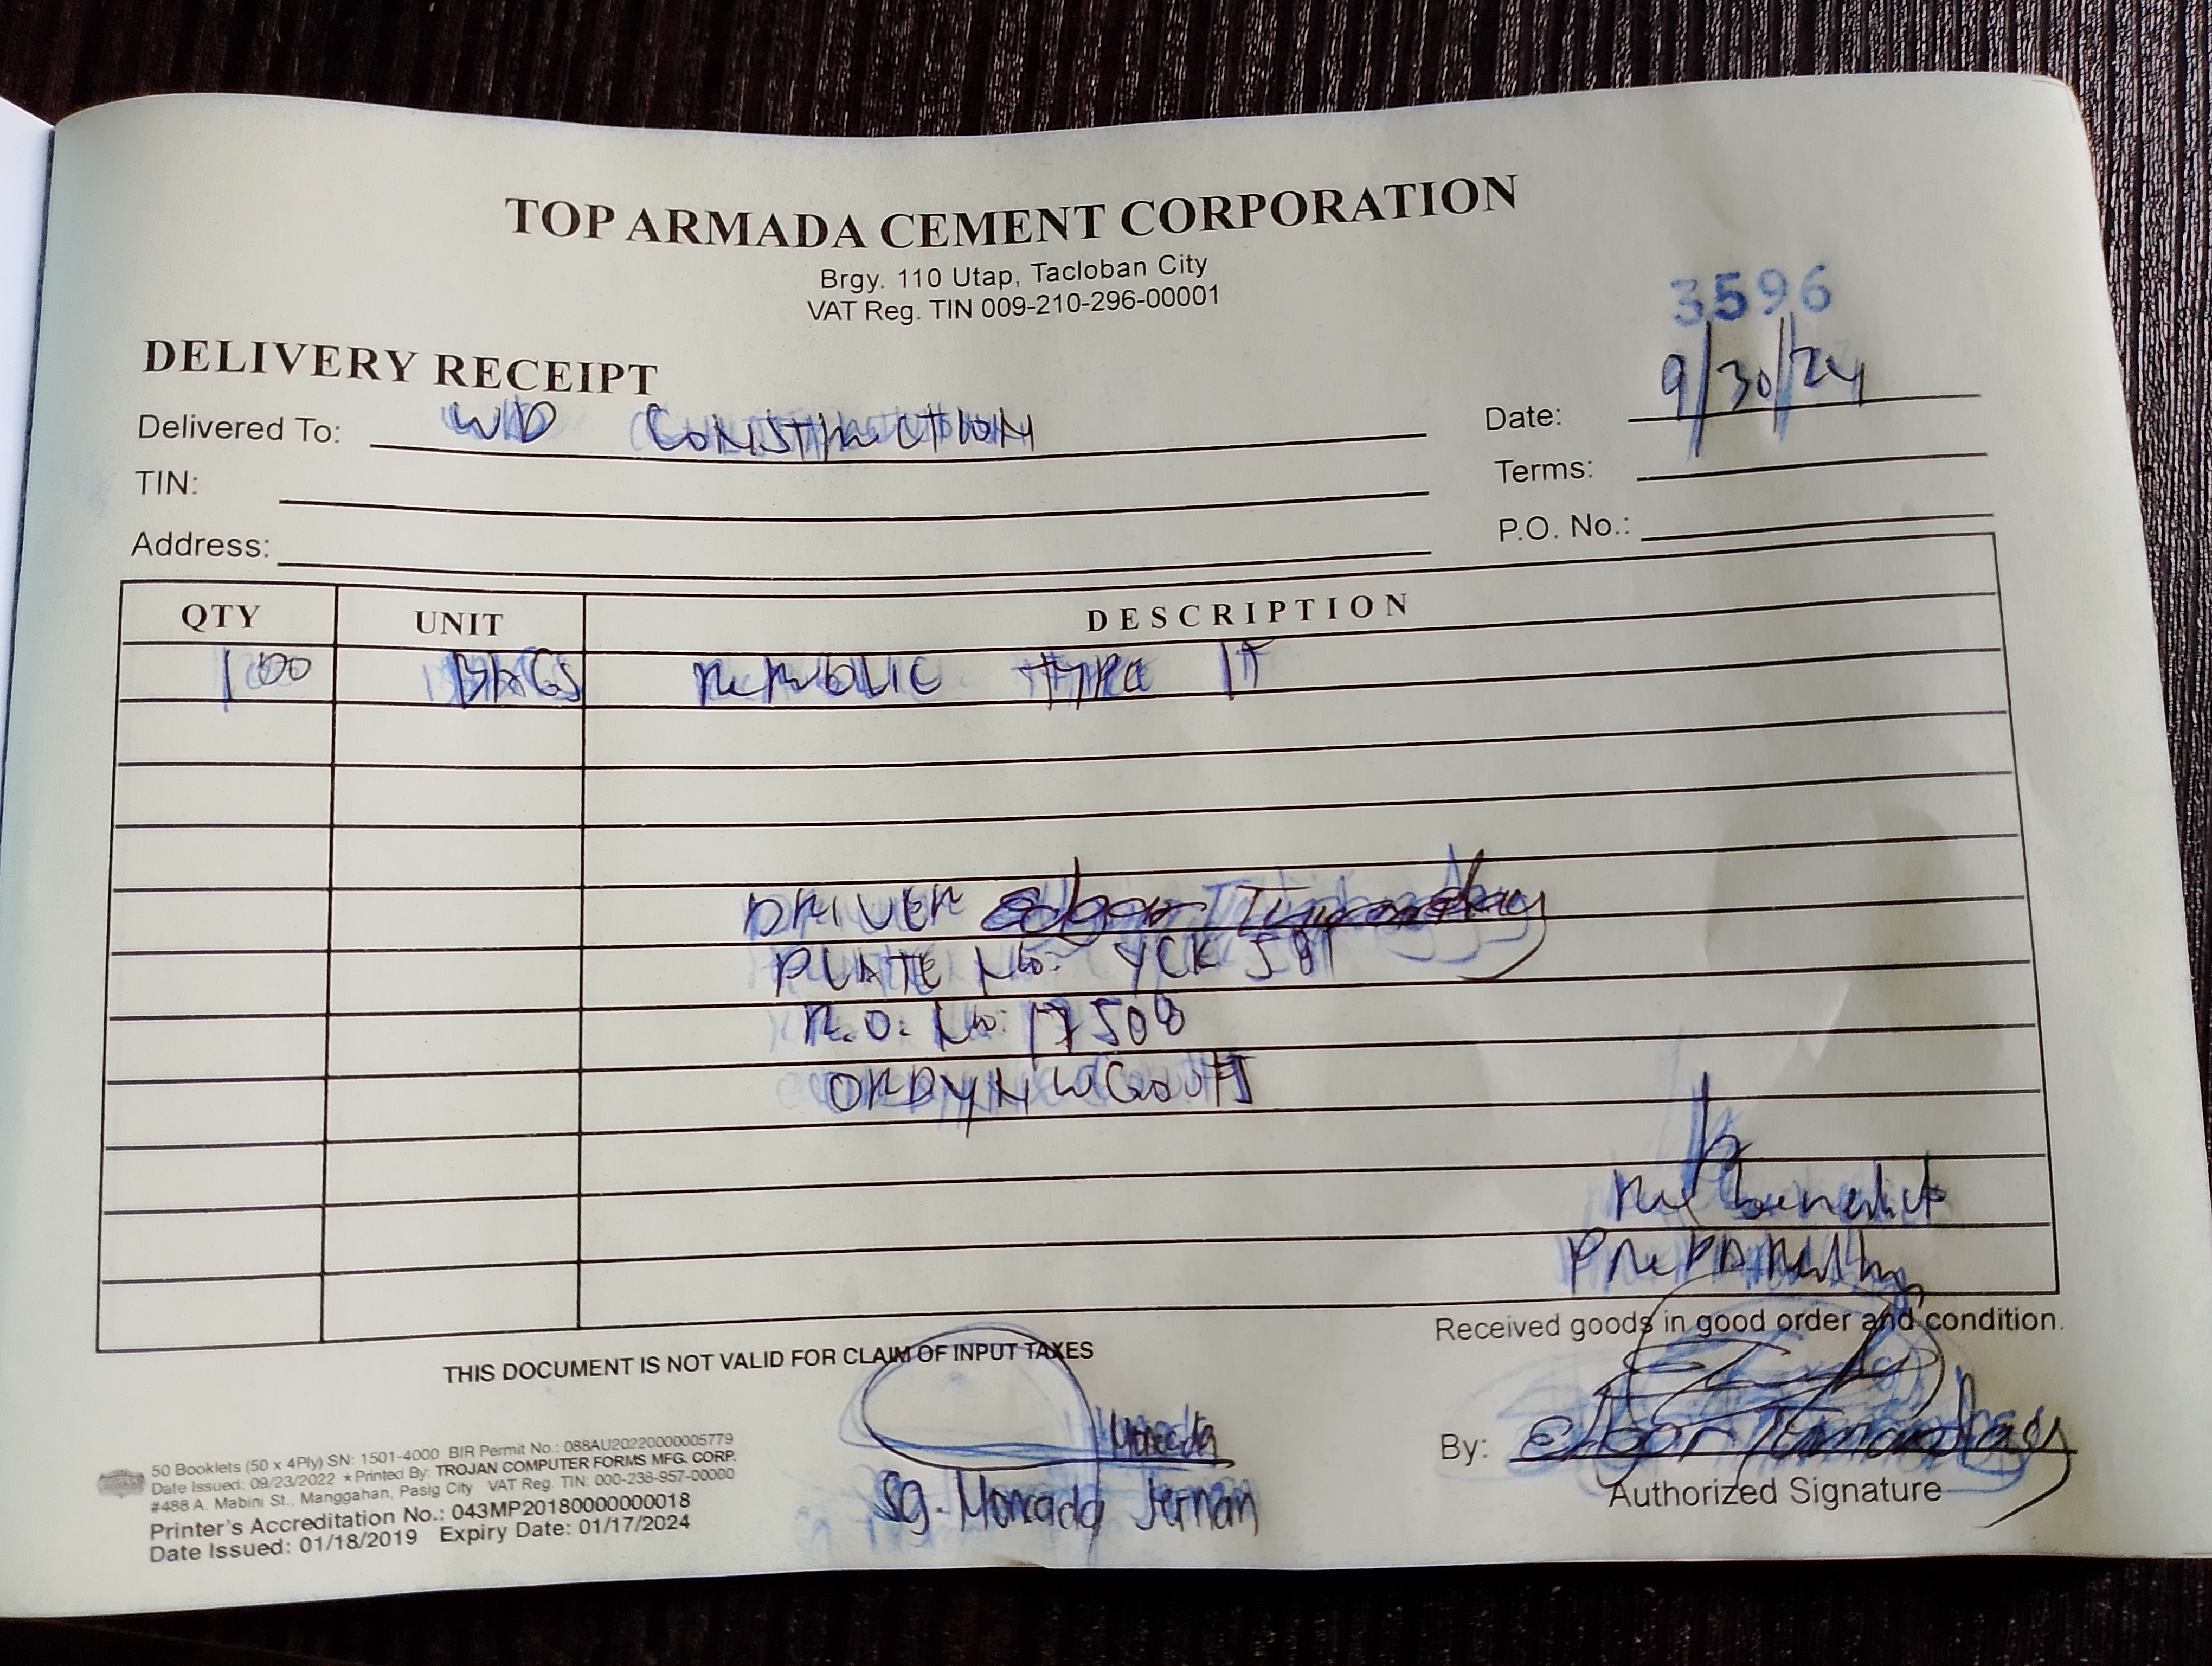 TOP ARMADA CEMENT CORPORATION
Brgy. 110 Utap, Tacloban City
VAT Reg. TIN 009-210-296-00001
3596
DELIVERY RECEIPT
Delivered To: WD CONSTRUCTION
Date: 9/30/24
TIN:
Terms:
Address:
P.O. No.:
QTY UNIT DESCRIPTION
100 BAGS REPUBLIC TYPE 1T
DRIVER
PLATE No: YCK 581
R.O. No: 17508
Benedict
Received goods in good order and condition.
THIS DOCUMENT IS NOT VALID FOR CLAIM OF INPUT TAXES
Moncada
By:
SG. Moncada Jernan
Authorized Signature
50 Booklets (50 x 4Ply) SN: 1501-4000 BIR Permit No.: 088AU20220000005779
Date Issued: 09/23/2022 ★ Printed By: TROJAN COMPUTER FORMS MFG. CORP.
#488 A. Mabini St., Manggahan, Pasig City VAT Reg. TIN: 000-238-957-00000
Printer's Accreditation No.: 043MP20180000000018
Date Issued: 01/18/2019 Expiry Date: 01/17/2024